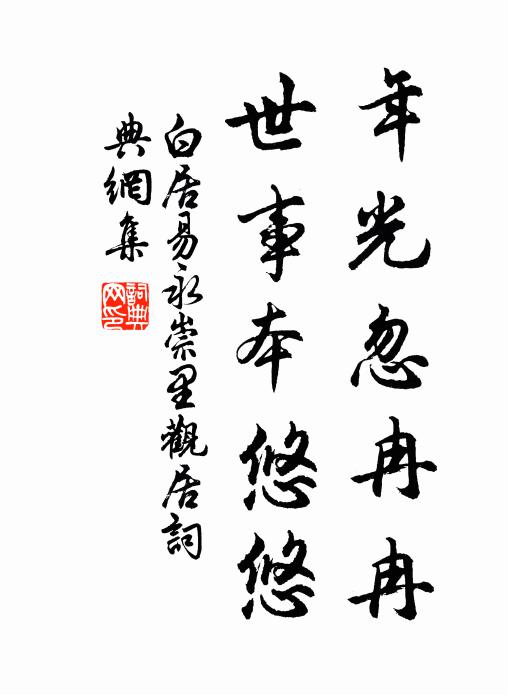 年光忽冉冉
世事本悠悠
白居易永崇里觀居詞
典網集
詞典
网印